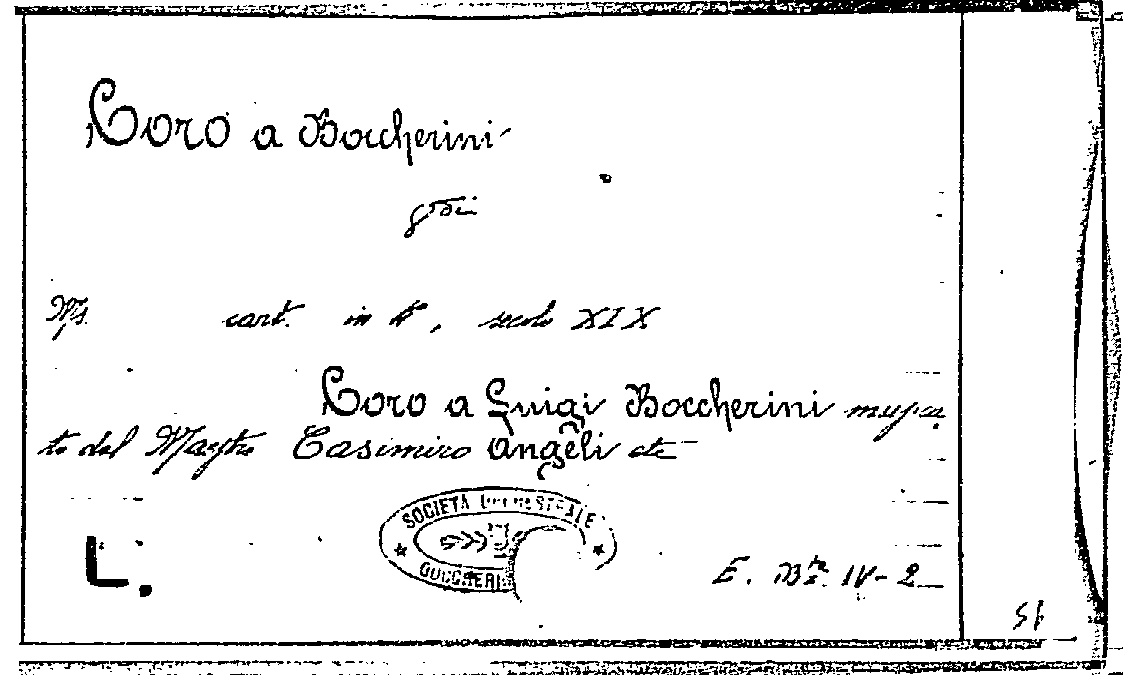 Coro a Boccherini
Ms. cart. in 4°, secolo XIX
Coro a Luigi Boccherini musica
to dal Maestro Casimiro Angeli etc
SOCIETÀ ORCHESTRALE
BOCCHERINI
L.
E. IV-2
51